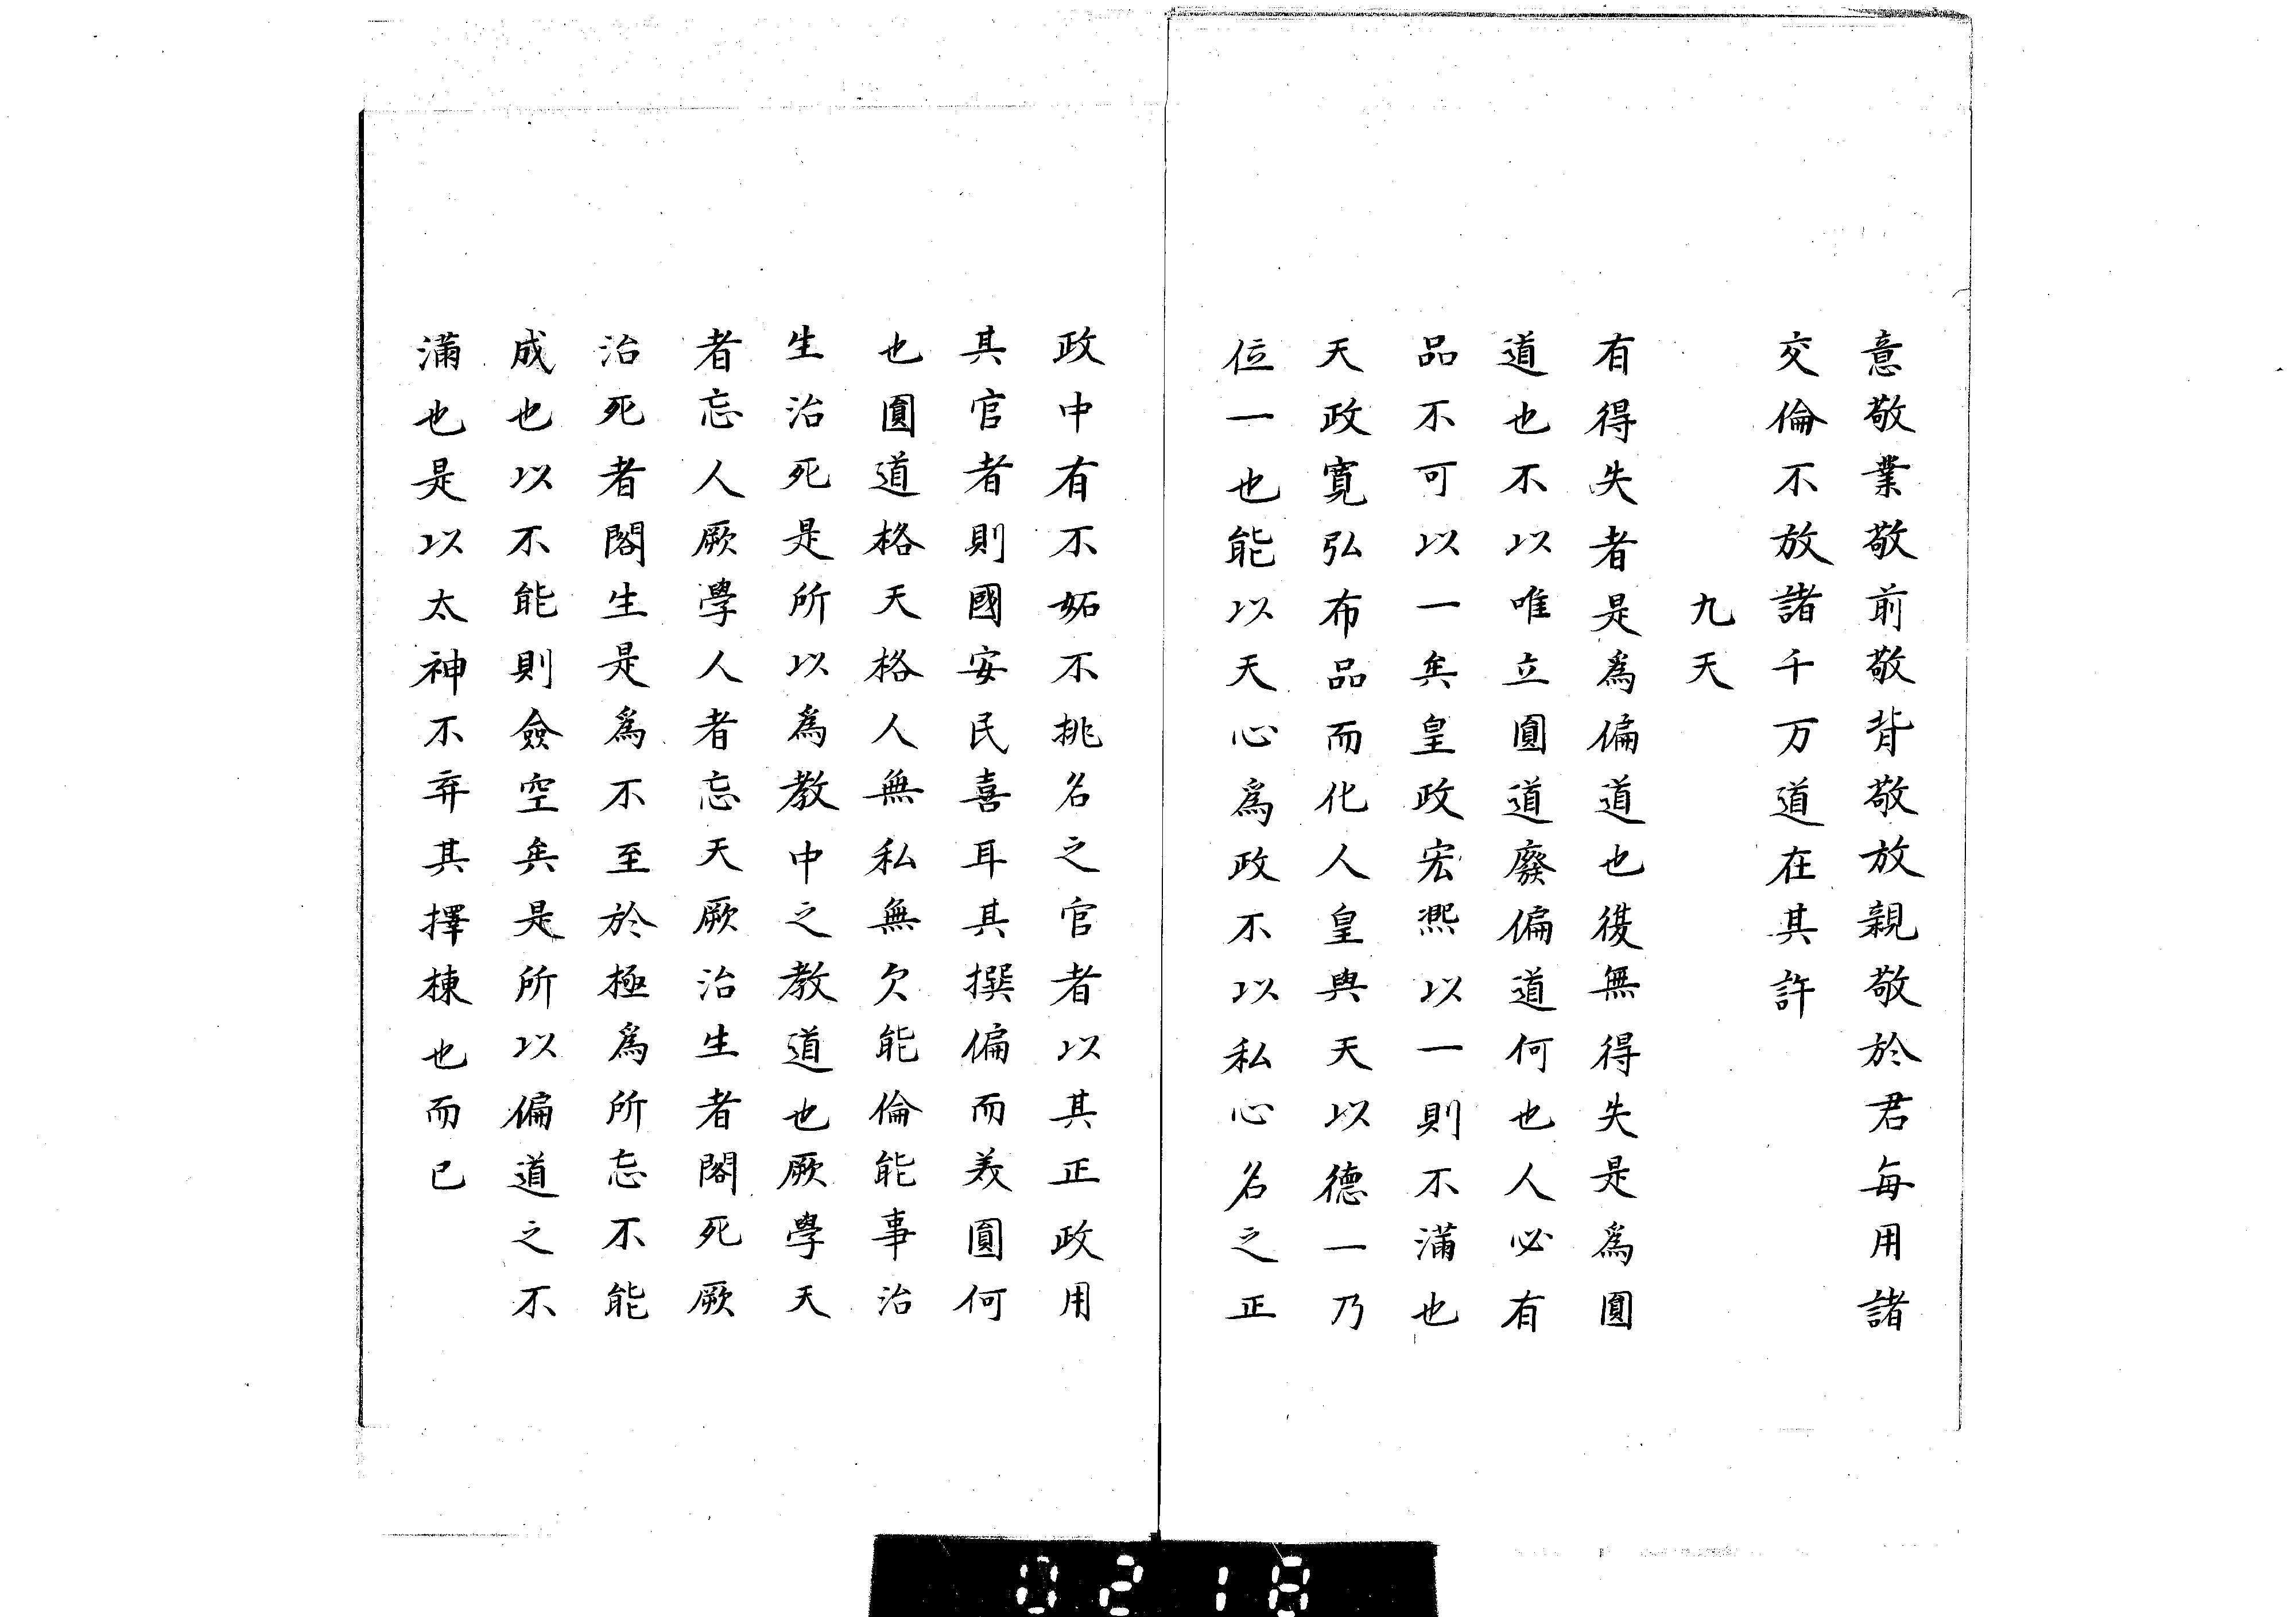 意敬業敬前敬背敬放親敬於君毎用諸
交倫不放諸千万道在其許
九天
有得失者是為偏道也復無得失是為圓
道也不以唯立圓道廢偏道何也人必有
品不可以一矣皇政宏熙以一則不滿也
天政寛弘布品而化人皇與天以德一乃
位一也能以天心為政不以私心名之正
政中有不妬不挑名之官者以其正政用
其官者則國安民喜耳其撰偏而義圓何
也圓道格天格人無私無欠能倫能事治
生治死是所以為教中之教道也厥學天
者忘人厥學人者忘天厥治生者閣死厥
治死者閣生是為不至於極為所忘不能
成也以不能則僉空矣是所以偏道之不
滿也是以太神不弃其擇棟也而已
0218